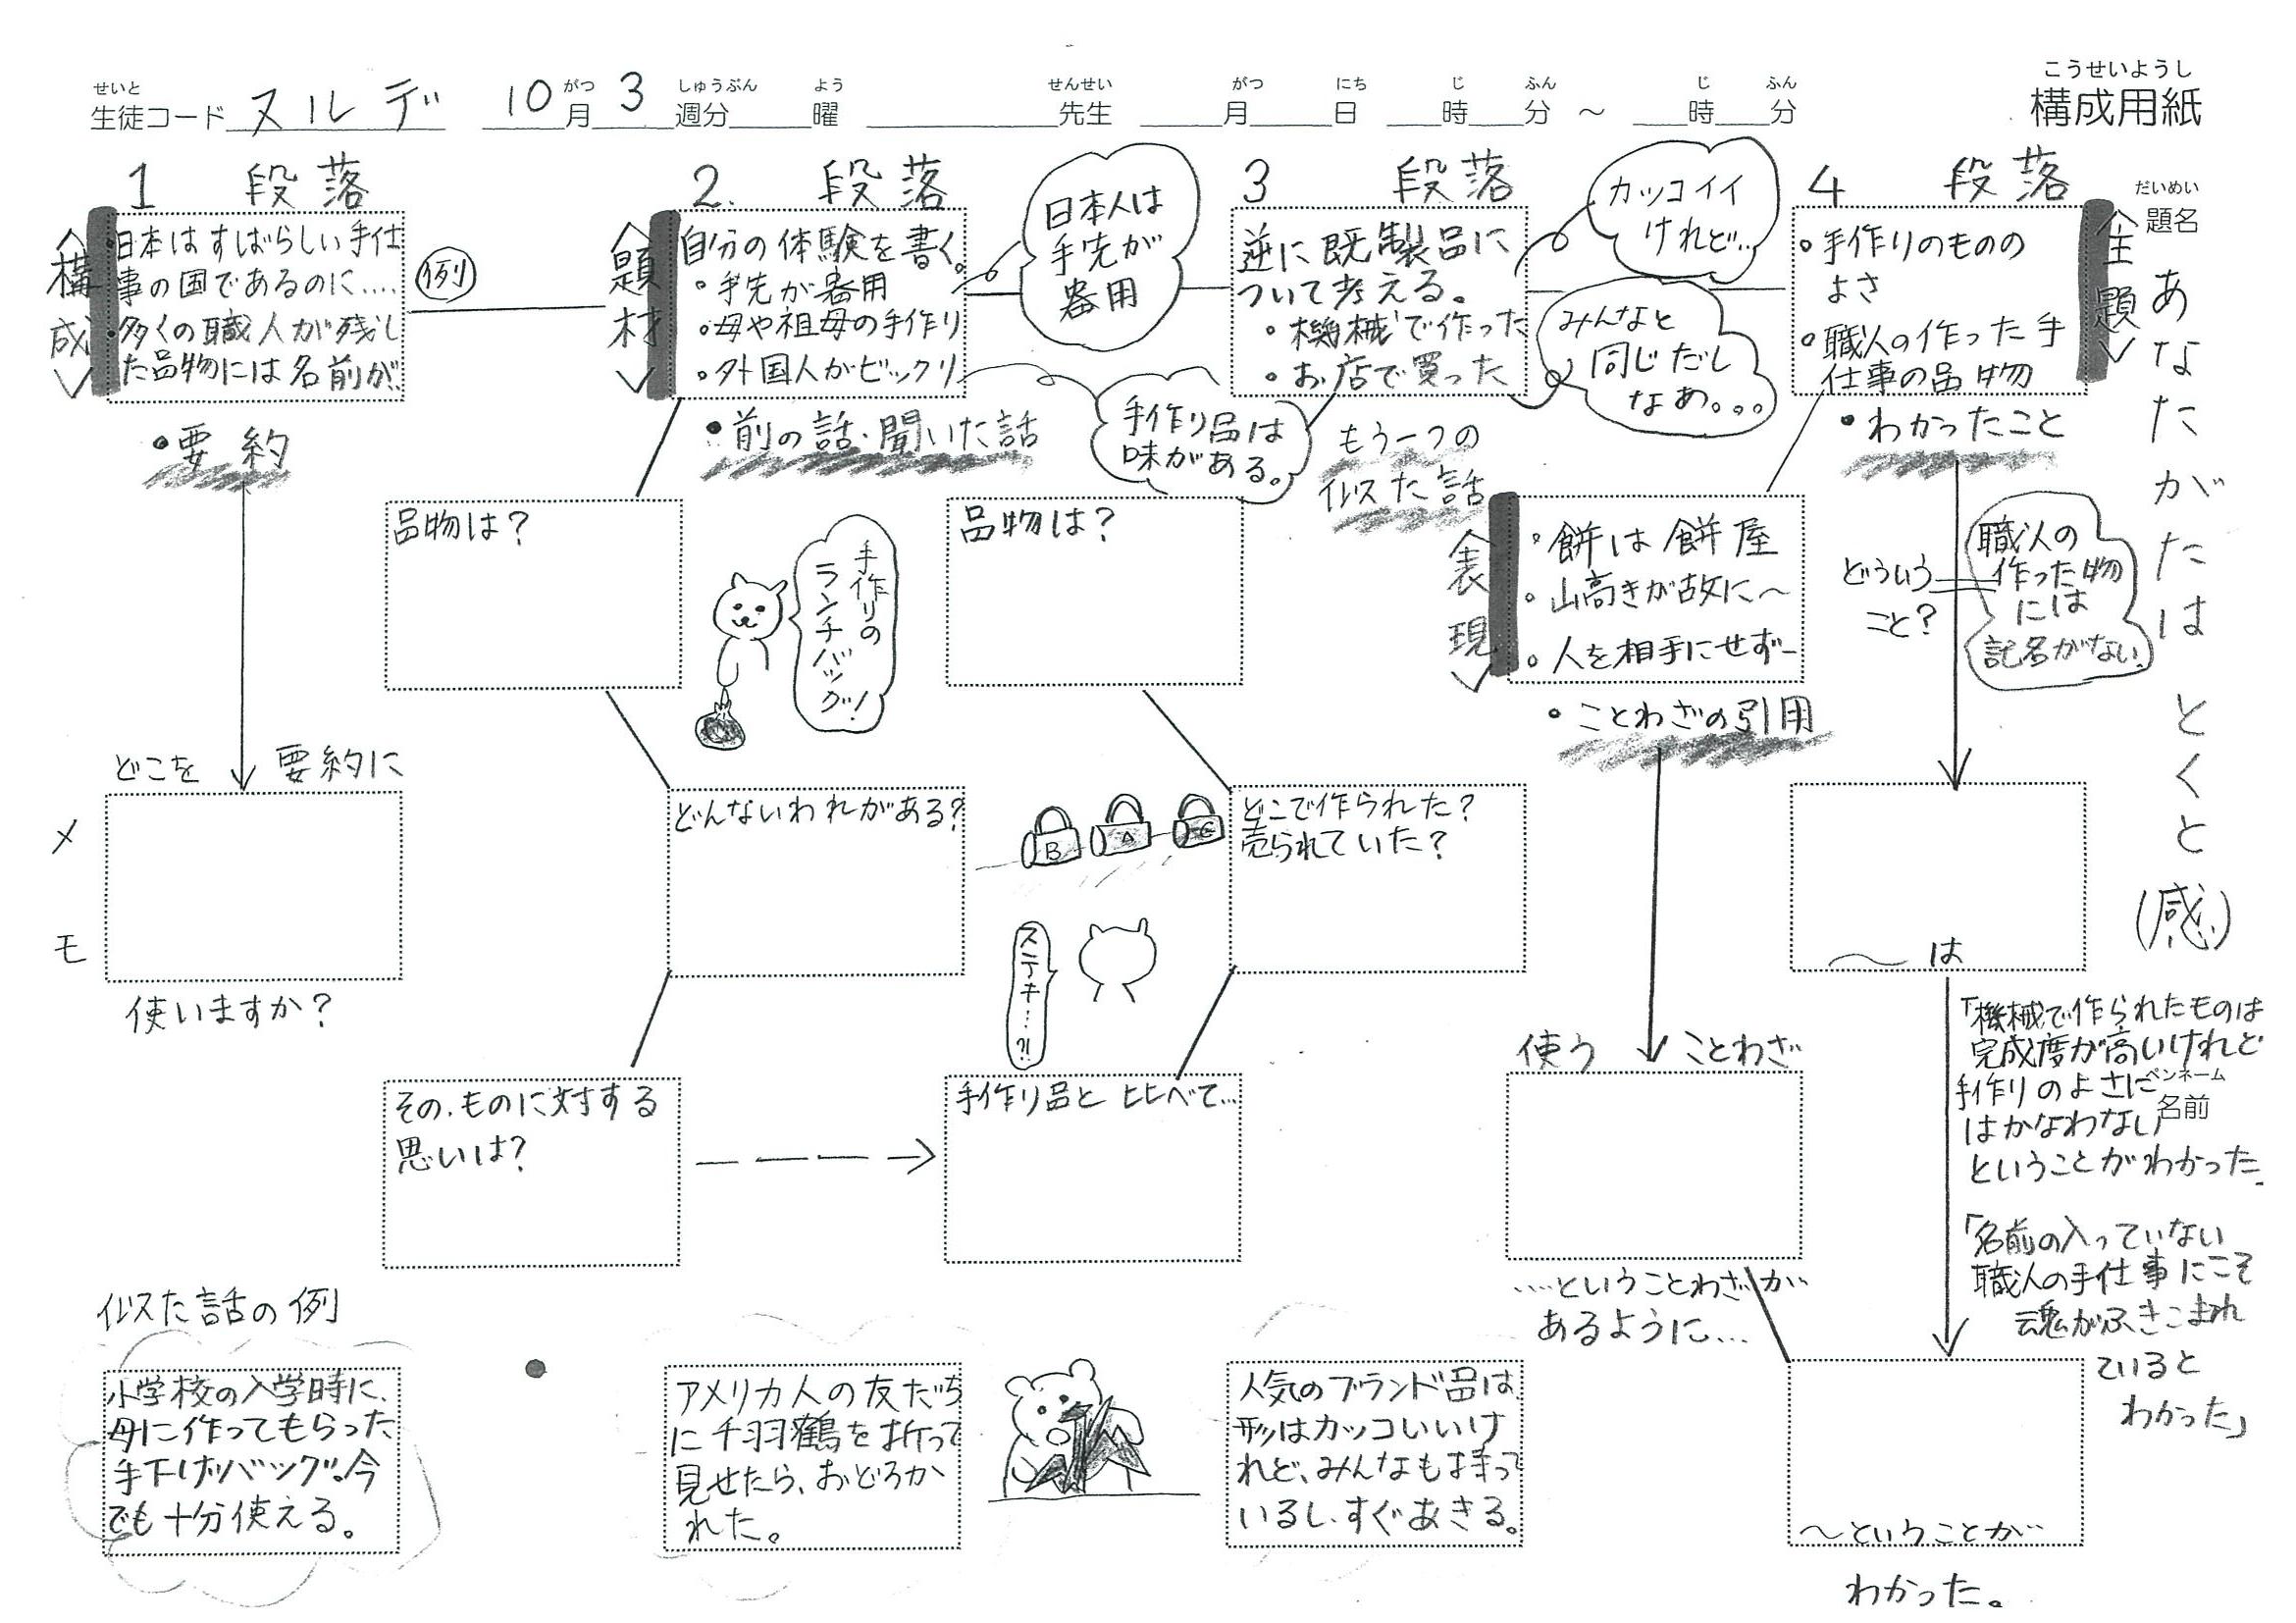 せいと
生徒コード ヌルデ 10月 3週分 曜 先生 月 日 時 分 ～ 時 分
がつ しゅうぶん よう せんせい がつ にち じ ふん じ ふん
こうせいようし
構成用紙
だいめい
題名
あなたがたは とくと (感)
1 段落
＜構成＞
・日本はすばらしい手仕
事の国であるのに….
・多くの職人が残し
た品物には名前が、
・要約
例
2. 段落
＜題材＞
自分の体験を書く。
・手先が器用
・母や祖母の手作り
・外国人がビックリ
・前の話・聞いた話
日本人は
手先が
器用
手作り品は
味がある。
3 段落
逆に既製品に
ついて考える。
・機械で作った
・お店で買った
もう一つの
似た話
カッコイイ
けれど…
みんなと
同じだし
なぁ。。。
4 段落
＜主題＞
・手作りのものの
よさ
・職人の作った手
仕事の品物
・わかったこと
品物は？
手作りの
ランチバッグ！
品物は？
＜表現＞
・餅は餅屋
・山高きが故に～
・人を相手にせず―
・ことわざの引用
どういう
こと？
職人の
作った物
には
記名がない。
メモ
どこを 要約に
使いますか？
どんないわれがある？
B A C
ステキ…?!
どこで作られた？
売られていた？
～は
その、ものに対する
思いは？
手作り品と比べて…
使う ことわざ
…ということわざが
あるように…
「機械で作られたものは
完成度が高いけれど
手作りのよさに
はかなわない
ということがわかった。
ペンネーム
名前
「名前の入っていない
職人の手仕事にこそ
魂がふきこまれ
ていると
わかった」
似た話の例
小学校の入学時に、
母に作ってもらった
手下げバッグ。今
でも十分使える。
アメリカ人の友だち
に千羽鶴を折って
見せたら、おどろか
れた。
人気のブランド品は
形はカッコいいけ
れど、みんなも持って
いるし、すぐあきる。
～ということが
わかった。